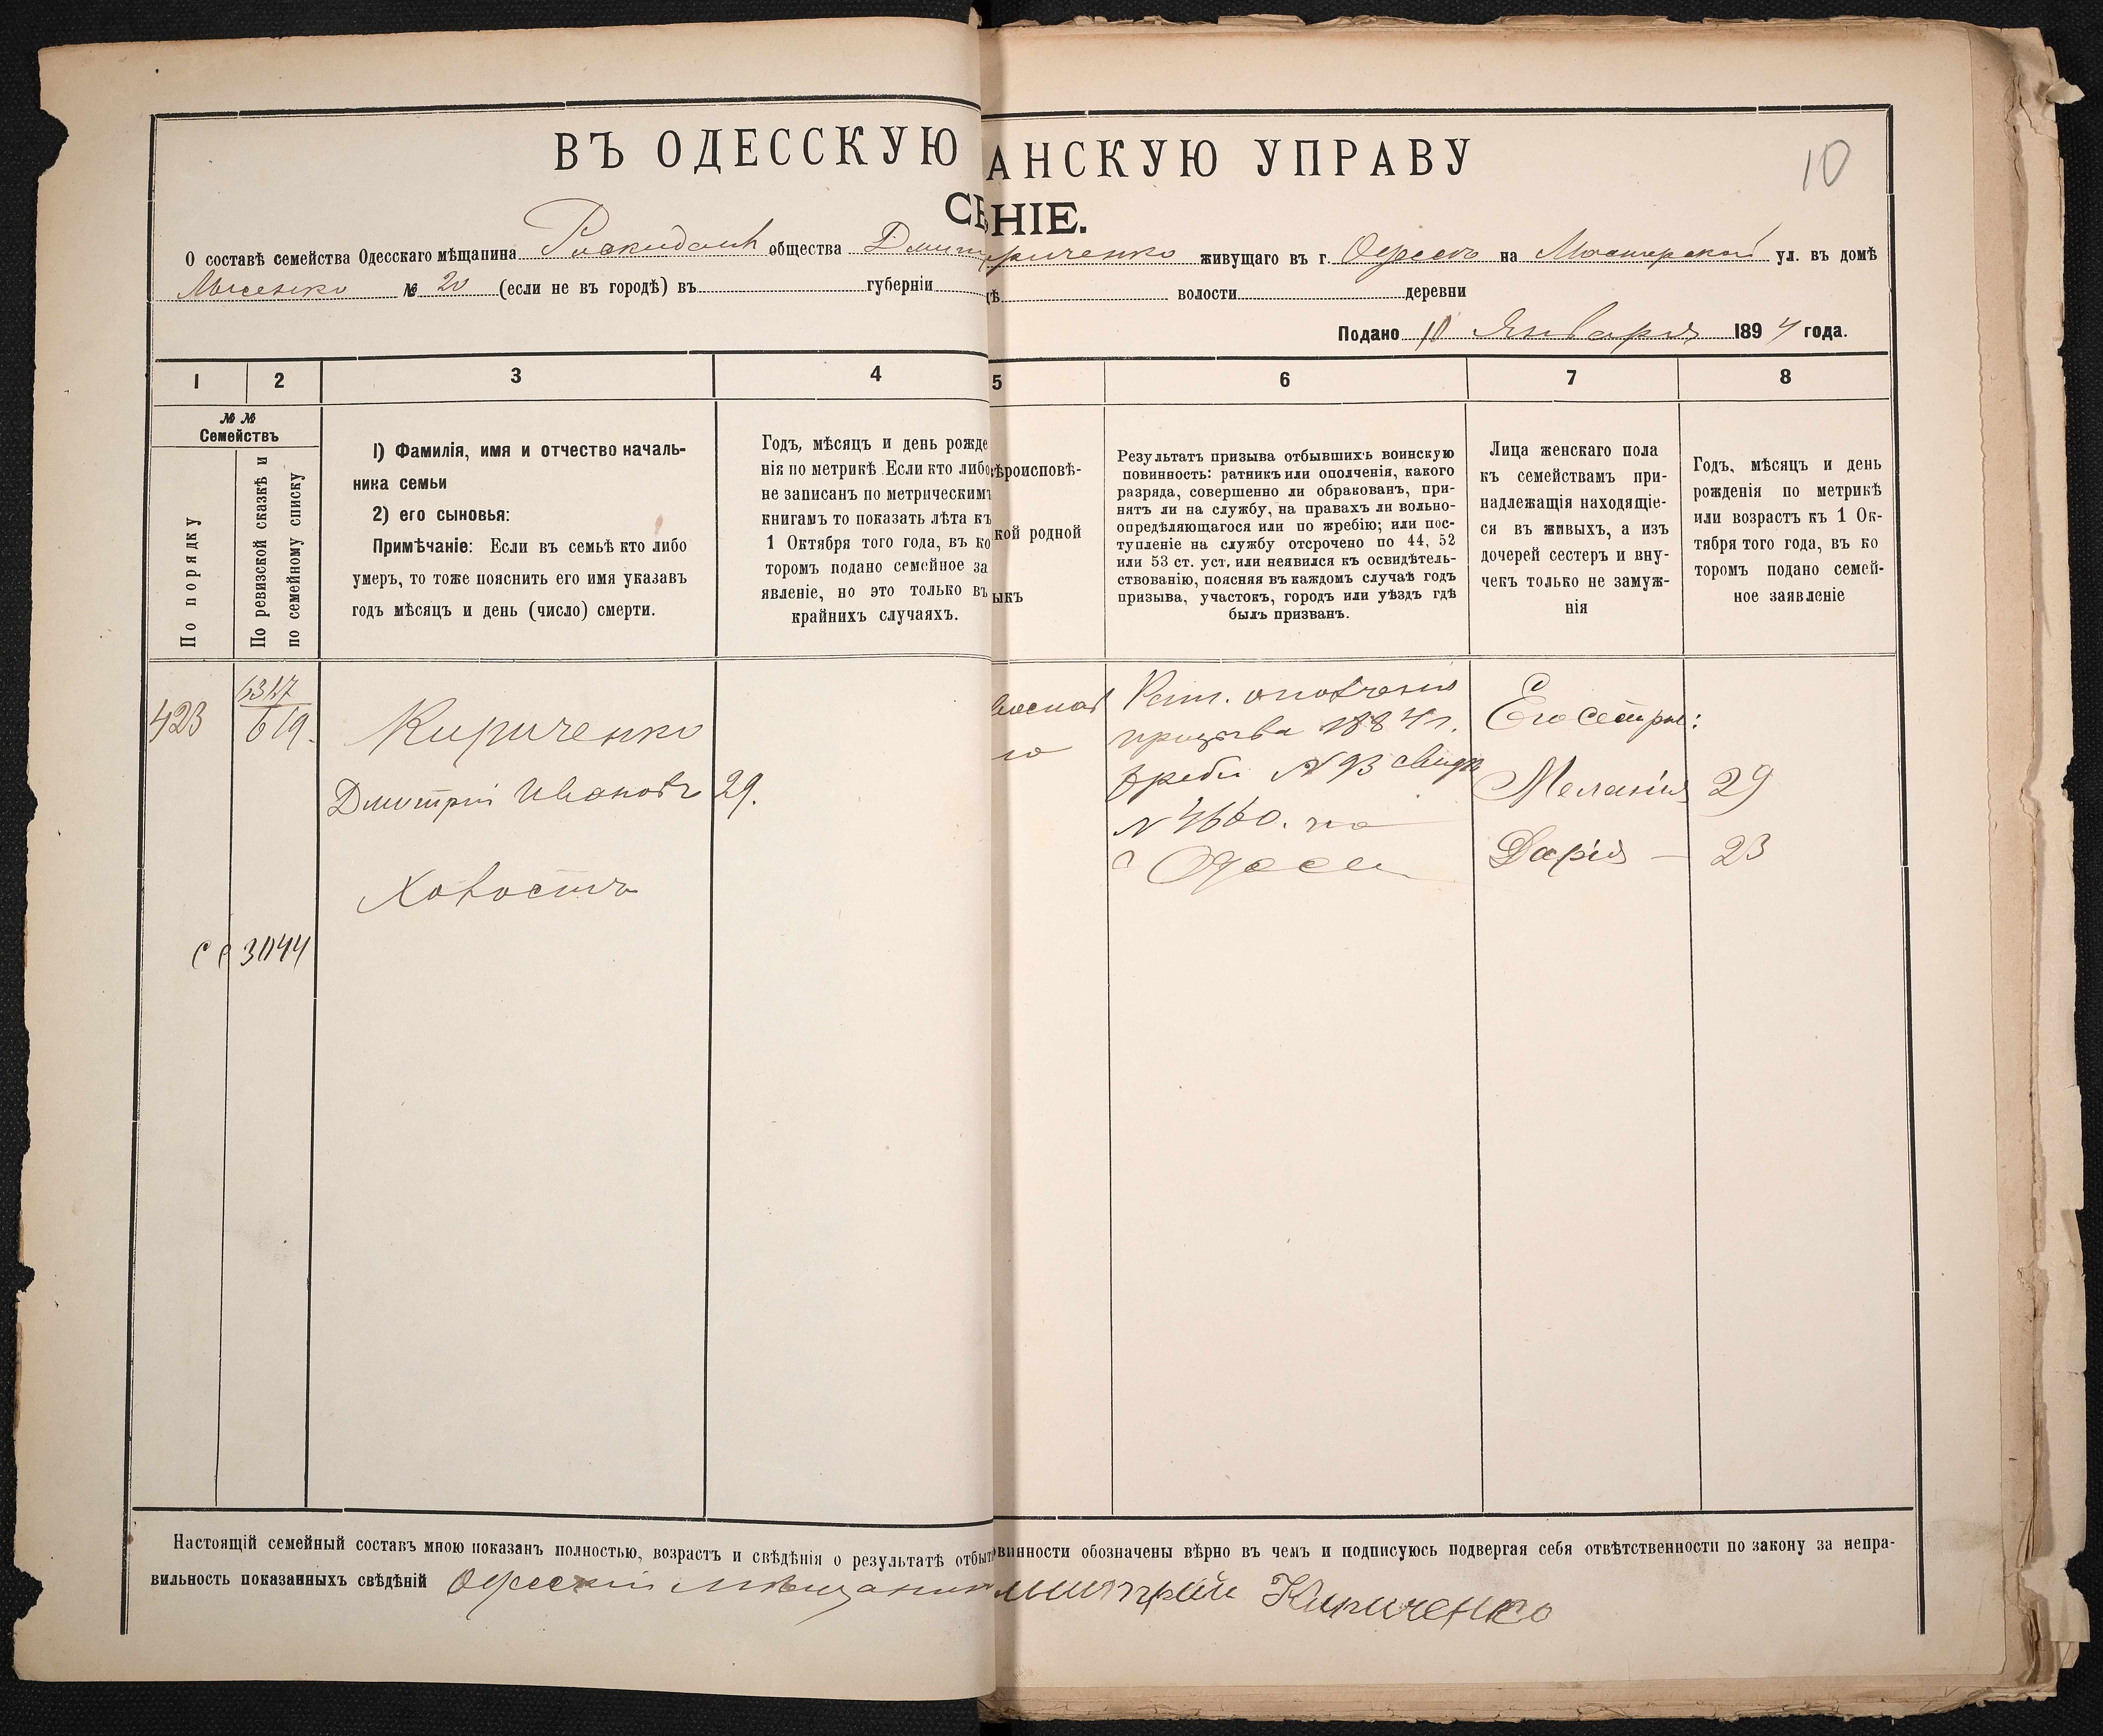 ВЪ ОДЕССКУЮ АНСКУЮ УПРАВУ
10
СЕ НІЕ.
О составѣ семейства Одесскаго мѣщанина общества Дмит риченко живущаго въ г. Одессѣ на Мастерской ул. въ домѣ
№ 20 (если не въ городѣ) въ губерніи дѣ волости деревни
Подано 10 Января 1894 года.
1 2 3 4 5 6 7 8
№ №
Семействъ
По порядку
По ревизской сказкѣ и
по семейному списку
1) Фамилія, имя и отчество началь-
ника семьи
2) его сыновья:
Примѣчаніе: Если въ семьѣ кто либо
умеръ, то тоже пояснить его имя указавъ
годъ мѣсяцъ и день (число) смерти.
Годъ, мѣсяцъ и день рожде
нія по метрикѣ. Если кто либо
не записанъ по метрическимъ
книгамъ то показать лѣта къ
1 Октября того года, въ ко
торомъ подано семейное за
явленіе, но это только въ
крайнихъ случаяхъ.
ѣроисповѣ-
кой родной
ыкъ
Результатъ призыва отбывшихъ воинскую
повинность: ратникъ или ополченія, какого
разряда, совершенно ли обракованъ, при-
нятъ ли на службу, на правахъ ли вольно-
опредѣляющагося или по жребію; или пос-
тупленіе на службу отсрочено по 44, 52
или 53 ст. уст, или неявился къ освидѣтель-
ствованію, поясняя въ каждомъ случаѣ годъ
призыва, участокъ, городъ или уѣздъ гдѣ
былъ призванъ.
Лица женскаго пола
къ семействамъ при-
надлежащія находящіе-
ся въ живыхъ, а изъ
дочерей сестеръ и вну-
чекъ только не замуж-
нія
Годъ, мѣсяцъ и день
рожденія по метрикѣ
или возрастъ къ 1 Ок-
тября того года, въ ко
торомъ подано семей-
ное заявленіе
423
619.
Кириченко
Дмитрій Ивановъ 29.
Холостъ
3044
славной
Рат. ополченія
призыва 1884 г.
жреб. № 93 свид.
№ 4660. по
г Одессѣ
Его сестры:
Меланія 29
Дарія — 23
Настоящій семейный составъ мною показанъ полностью, возрастъ и свѣдѣнія о результатѣ отбыт винности обозначены вѣрно въ чемъ и подписуюсь подвергая себя отвѣтственности по закону за непра-
вильность показанныхъ свѣдѣній Одесскій мѣщанин митрій Кириченко